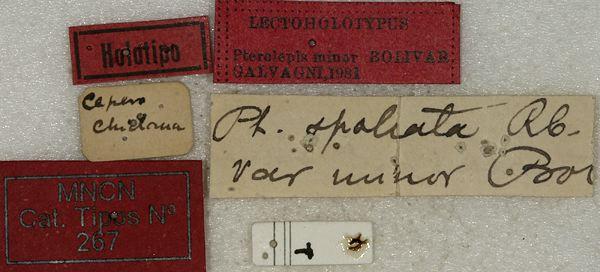 Holotipo
LECTOHOLOTYPUS
Pterolepis minor BOLIVAR,
GALVAGNI, 1981
Ph. spoliata Rb.
var minor Bol
MNCN
Cat. Tipos Nº
267